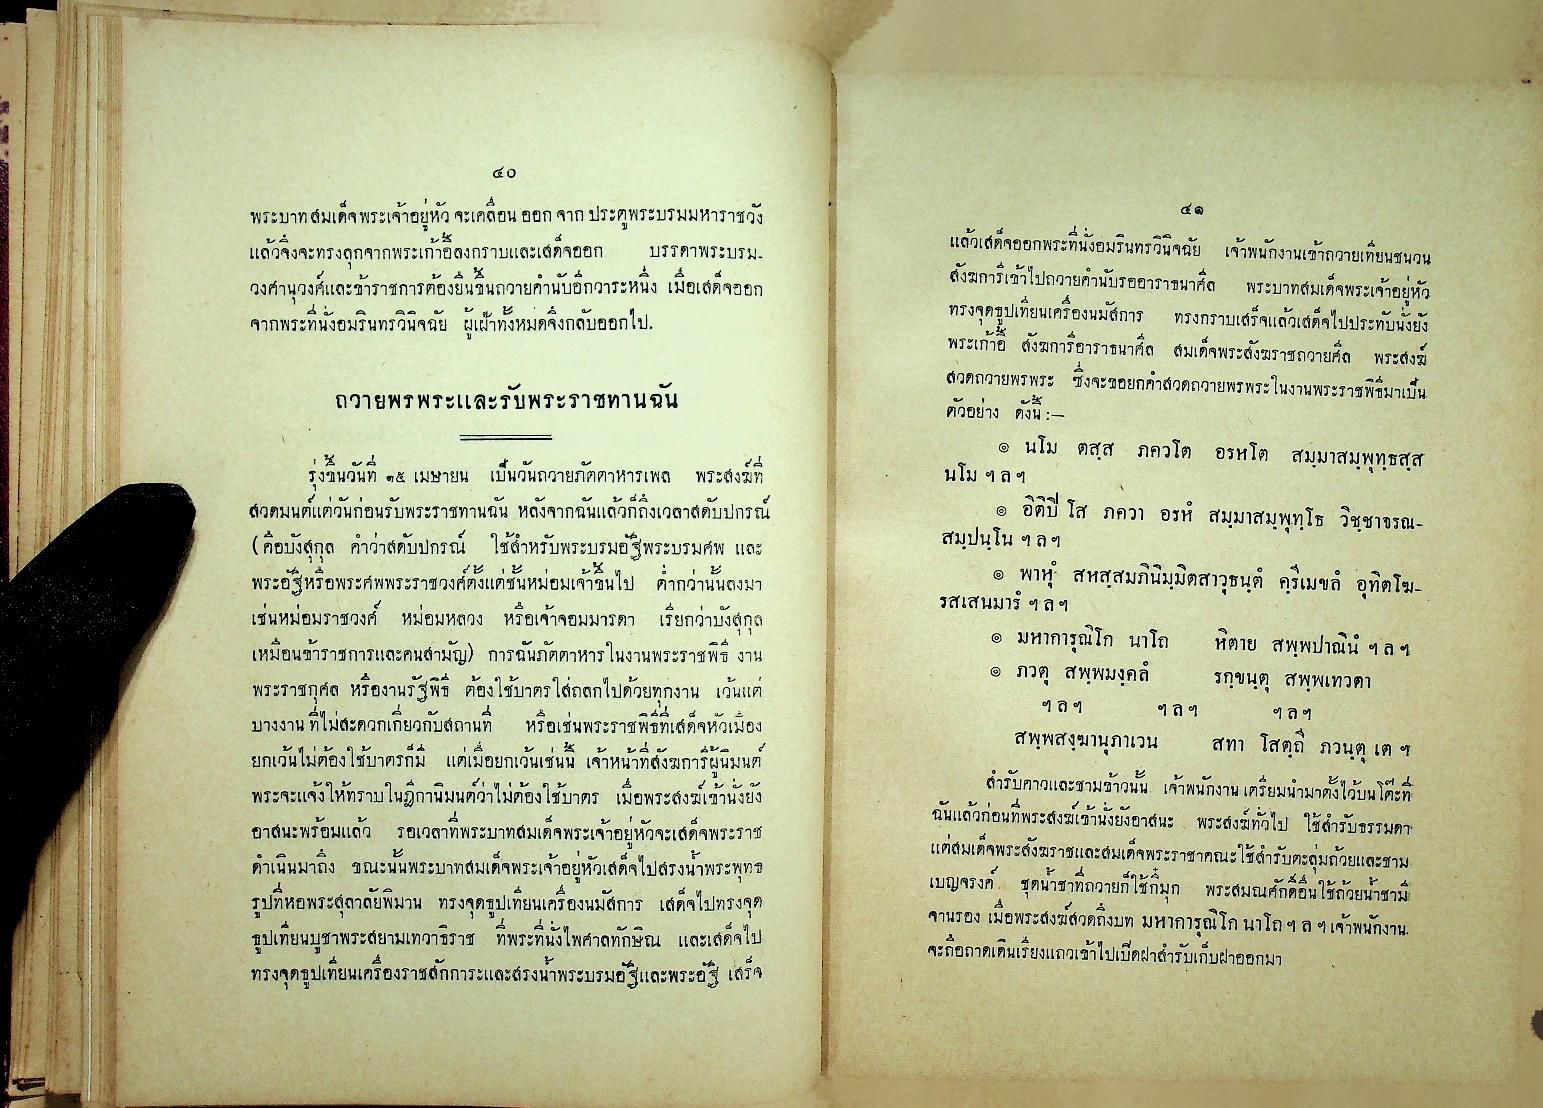 ๔๐
พระบาทสมเด็จพระเจ้าอยู่หัว จะเคลื่อน ออก จาก ประตูพระบรมมหาราชวัง
แล้วจึ่งจะทรงลุกจากพระเก้าอี้ลงกราบและเสด็จออก บรรดาพระบรม-
วงศานุวงศ์และข้าราชการต้องยืนขึ้นถวายคำนับอีกวาระหนึ่ง เมื่อเสด็จออก
จากพระที่นั่งอมรินทรวินิจฉัย ผู้เฝ้าทั้งหมดจึ่งกลับออกไป.
ถวายพรพระและรับพระราชทานฉัน
รุ่งขึ้นวันที่ ๑๕ เมษายน เป็นวันถวายภัตตาหารเพล พระสงฆ์ที่
สวดมนต์แต่วันก่อนรับพระราชทานฉัน หลังจากฉันแล้วก็ถึงเวลาสดับปกรณ์
(คือบังสุกุล คำว่าสดับปกรณ์ ใช้สำหรับพระบรมอัฐิพระบรมศพ และ
พระอัฐิหรือพระศพพระราชวงศ์ตั้งแต่ชั้นหม่อมเจ้าขึ้นไป ต่ำกว่านั้นลงมา
เช่นหม่อมราชวงศ์ หม่อมหลวง หรือเจ้าจอมมารดา เรียกว่าบังสุกุล
เหมือนข้าราชการและคนสามัญ) การฉันภัตตาหารในงานพระราชพิธี งาน
พระราชกุศล หรืองานรัฐพิธี ต้องใช้บาตรใส่ถลกไปด้วยทุกงาน เว้นแต่
บางงาน ที่ไม่สะดวกเกี่ยวกับสถานที่ หรือเช่นพระราชพิธีที่เสด็จหัวเมือง
ยกเว้นไม่ต้องใช้บาตรก็มี แต่เมื่อยกเว้นเช่นนี้ เจ้าหน้าที่สังฆการีผู้นิมนต์
พระจะแจ้งให้ทราบในฎีกานิมนต์ว่าไม่ต้องใช้บาตร เมื่อพระสงฆ์เข้านั่งยัง
อาสนะพร้อมแล้ว รอเวลาที่พระบาทสมเด็จพระเจ้าอยู่หัวจะเสด็จพระราช
ดำเนินมาถึง ขณะนั้นพระบาทสมเด็จพระเจ้าอยู่หัวเสด็จไปสรงน้ำพระพุทธ
รูปที่หอพระสุลาลัยพิมาน ทรงจุดธูปเทียนเครื่องนมัสการ เสด็จไปทรงจุด
ธูปเทียนบูชาพระสยามเทวาธิราช ที่พระที่นั่งไพศาลทักษิณ และเสด็จไป
ทรงจุดธูปเทียนเครื่องราชสักการะและสรงน้ำพระบรมอัฐิและพระอัฐิ เสร็จ
๔๑
แล้วเสด็จออกพระที่นั่งอมรินทรวินิจฉัย เจ้าพนักงานเข้าถวายเทียนชนวน
สังฆการีเข้าไปถวายคำนับรออาราธนาศีล พระบาทสมเด็จพระเจ้าอยู่หัว
ทรงจุดธูปเทียนเครื่องนมัสการ ทรงกราบเสร็จแล้วเสด็จไปประทับนั่งยัง
พระเก้าอี้ สังฆการีอาราธนาศีล สมเด็จพระสังฆราชถวายศีล พระสงฆ์
สวดถวายพรพระ ซึ่งจะขอยกคำสวดถวายพรพระในงานพระราชพิธีมาเป็น
ตัวอย่าง ดังนี้ :—
๏ นโม ตสฺส ภควโต อรหโต สมฺมาสมฺพุทฺธสฺส
นโม ฯ ล ฯ
๏ อิติปิ โส ภควา อรหํ สมฺมาสมฺพุทฺโธ วิชฺชาจรณ-
สมฺปนฺโน ฯ ล ฯ
๏ พาหุํ สหสฺสมภินิมฺมิตสาวุธนฺตํ คฺรีเมขลํ อุทิตโฆ-
รสเสนมารํ ฯ ล ฯ
๏ มหาการุณิโก นาโถ หิตาย สพฺพปาณินํ ฯ ล ฯ
๏ ภวตุ สพฺพมงฺคลํ รกฺขนฺตุ สพฺพเทวตา
ฯ ล ฯ ฯ ล ฯ ฯ ล ฯ
สพฺพสงฺฆานุภาเวน สทา โสตฺถี ภวนฺตุ เต ฯ
สำรับคาวและชามข้าวนั้น เจ้าพนักงาน เตรียมนำมาตั้งไว้บนโต๊ะที่
ฉันแล้วก่อนที่พระสงฆ์เข้านั่งยังอาสนะ พระสงฆ์ทั่วไป ใช้สำรับธรรมดา
แต่สมเด็จพระสังฆราชและสมเด็จพระราชาคณะใช้สำรับตะลุ่มถ้วยและชาม
เบญจรงค์ ชุดน้ำชาที่ถวายก็ใช้กี๋มุก พระสมณศักดิ์อื่นใช้ถ้วยน้ำชามี
จานรอง เมื่อพระสงฆ์สวดถึงบท มหาการุณิโก นาโถ ฯ ล ฯ เจ้าพนักงาน
จะถือถาดเดินเรียงแถวเข้าไปเปิดฝาสำรับเก็บฝาออกมา